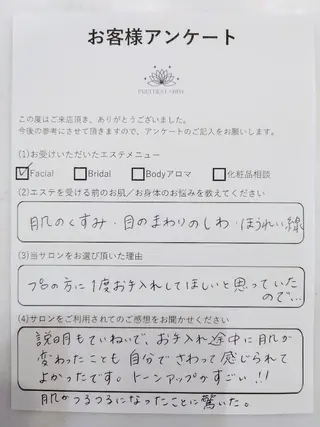 お客様アンケート
この度はご来店頂き、ありがとうございました。
今後の参考にさせて頂きますので、アンケートのご記入をお願いします。
(1)お受けいただいたエステメニュー
Facial Bridal Bodyアロマ 化粧品相談
(2)エステを受ける前のお肌／お身体のお悩みを教えてください
肌のくすみ・目のまわりのしわ・ほうれい線
(3)当サロンをお選び頂いた理由
プロの方に1度お手入れしてほしいと思っていた
ので…
(4)サロンをご利用されてのご感想をお聞かせください
説明もていねいで、お手入れ途中に肌が
変わったことも自分でさわって感じられて
よかったです。トーンアップがすごい!!
肌がつるつるになったことに驚いた。